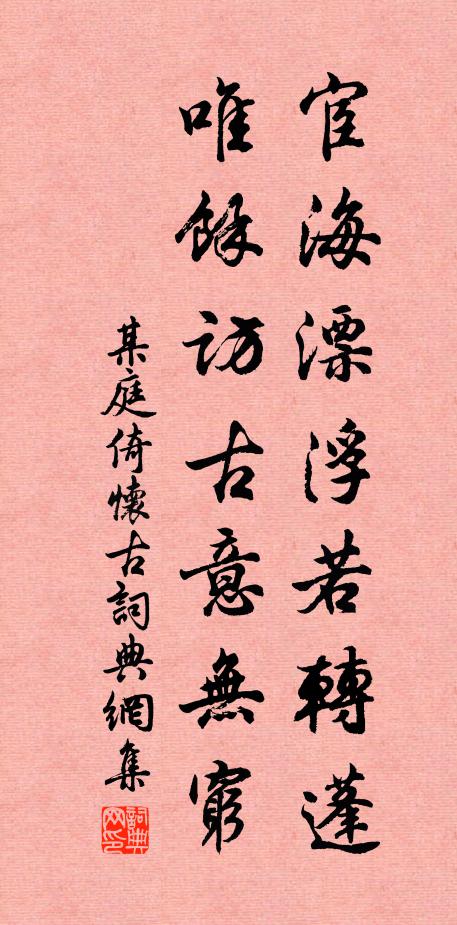 宦海漂浮若轉蓬
唯餘訪古意無窮
某庭倚懷古詞典網集
詞典网印